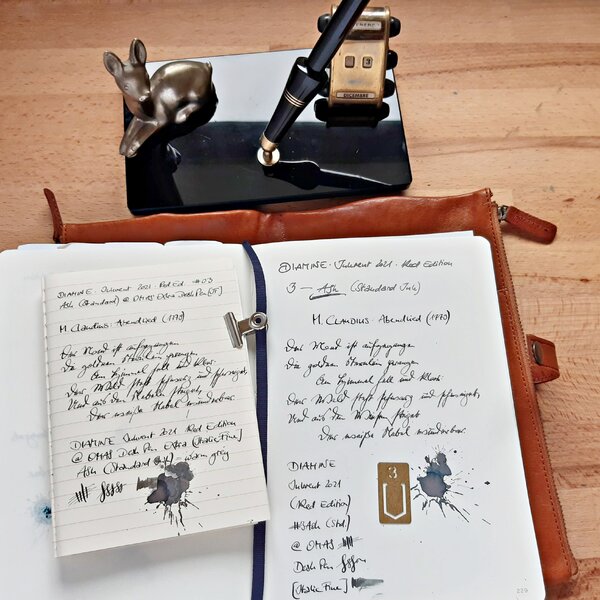 3
DICEMBRE
DIAMINE · Inkvent 2021 · Red Ed. #03
Ash (Standard) @ OMAS Extra Desk Pen [IF]
M. Claudius · Abendlied (1779)
Der Mond ist aufgegangen
Die goldnen Sternlein prangen
Am Himmel hell und klar:
Der Wald steht schwarz und schweiget,
Und aus den steiget
Der weiße Nebel wunderbar.
DIAMINE Inkvent 2021 Red Edition
@ OMAS Desk Pen Extra [Italic Fine]
Ash (Standard Ink) – warm grey
DIAMINE · Inkvent 2021 · Red Edition
3 — Ash (Standard Ink)
M. Claudius · Abendlied (1779)
Der Mond ist aufgegangen
Die goldnen Sternlein prangen
Am Himmel hell und klar:
Der Wald steht schwarz und schweiget,
Und aus den Wiesen steiget
Der weiße Nebel wunderbar.
DIAMINE
Inkvent 2021
(Red Edition)
#3 Ash (Std.)
@ OMAS
Desk Pen
[Italic Fine]
3
229